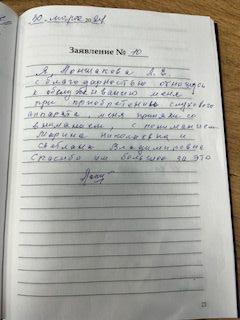 30 марта 2024
Заявление № 10
Я, Поншакова Л. В.
с благодарностью отношусь
к обслуживанию меня
при приобретении слухового
аппарата, меня приняли со
вниманием, с пониманием.
Марина Николаевна и
Светлана Владимировна
Спасибо им большое за это